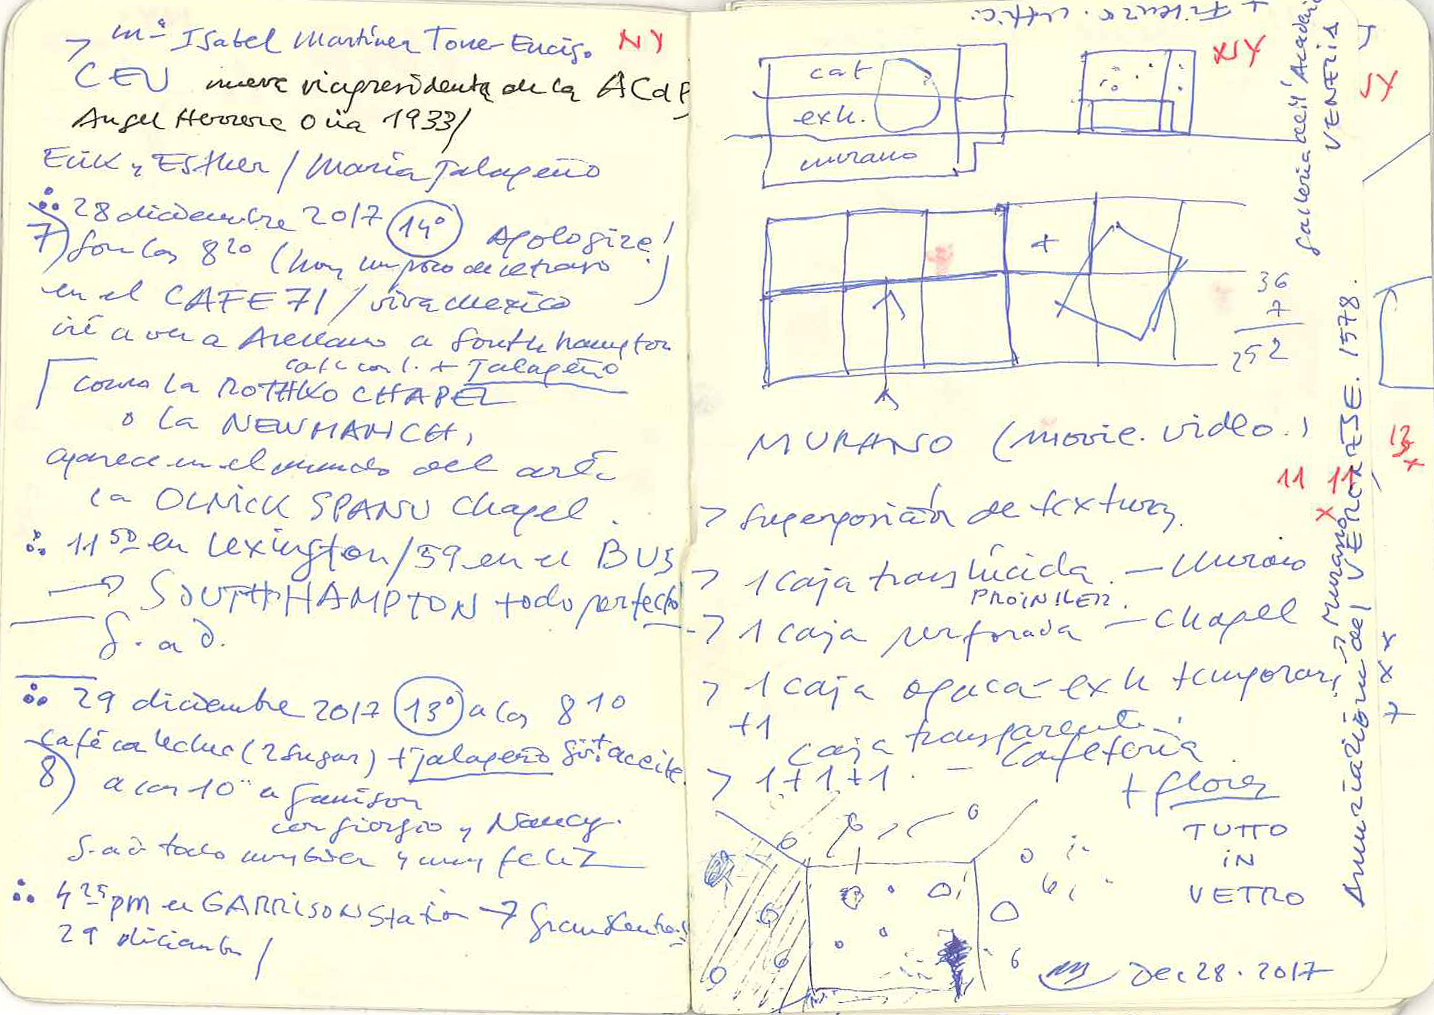 > Mª Isabel Martínez Torre Enciso NY
CEU nueva vicepresidenta de la ACdP
Angel Herrera Oria 1933/
Erik y Esther / Maria Jalapeño
28 diciembre 2017 14º Apologize!
7) Son las 8 20 (hoy un poco de retraso)
en el CAFE 71 / viva Mexico
iré a ver a Arellano a Southhampton
café con l. + Jalapeño
como la ROTHKO CHAPEL
o la NEWMANCH,
aparece en el mundo del arte
la OLNICK SPANU Chapel.
11 50 en Lexington/59 en el BUS
→ SOUTHHAMPTON todo perfecto
g. a D.
29 diciembre 2017 13º a las 8 10
8) café con leche (2 sugar) + jalapeño sin + aceite
a las 10 a Garrison
con Giorgio y Nancy.
g. a D todo muy bien y muy feliz
4 25 pm en GARRISON Station → Grand Central
29 diciembre /
+ Firenze. Uffici.
cat
exh.
murano
NY
NY
+
36
7
252
MURANO (movie. video.)
11 11
x
> Superposición de texturas.
> 1 caja translúcida. — Murano
PROINILER.
> 1 caja perforada — Chapel
> 1 caja opaca — exh temporary
+1
caja transparente.
> 1+1+1. — Cafetería
+ flores
TUTTO
IN
VETRO
Dec 28. 2017
Galleria dell'Academia
VENEZIA
→ Murano
Annunciazione del VERONESE. 1578.